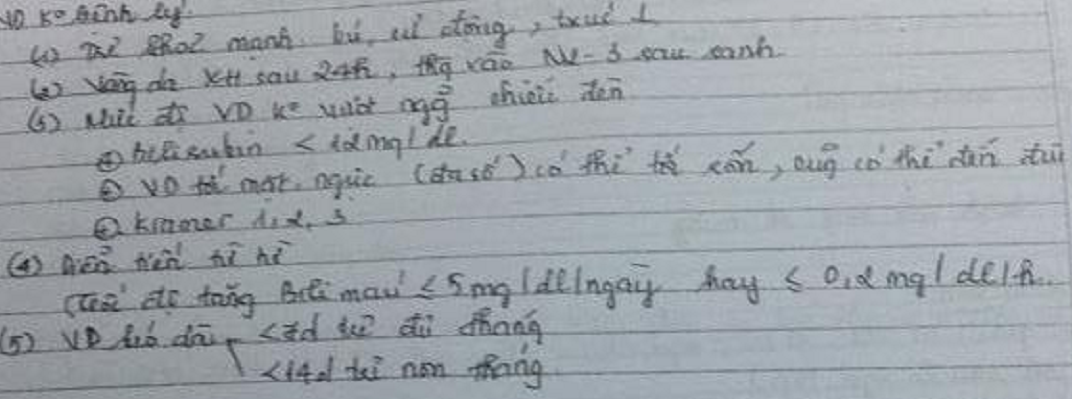 VD ko bệnh lý
(1) Trẻ khoẻ mạnh, bú, cử động,
(2) Vàng da XH sau 24h, thg vào N2-3 sau sanh
(3) Mức độ VD ko vượt ngg chiếu đèn
+ bilirubin < 12mg/dl.
+ VD tới mặt, ngực (đa số) có thể tới rốn, cũg có thể đến đùi
+ Kramer 1, 2, 3
(4) Diễn tiến từ từ
(Tốc độ tăng Bili máu ≤ 5mg/dl/ngày hay ≤ 0,2mg/dl/h.
(5) VD kéo dài <7d trẻ đủ tháng
<14d trẻ non tháng